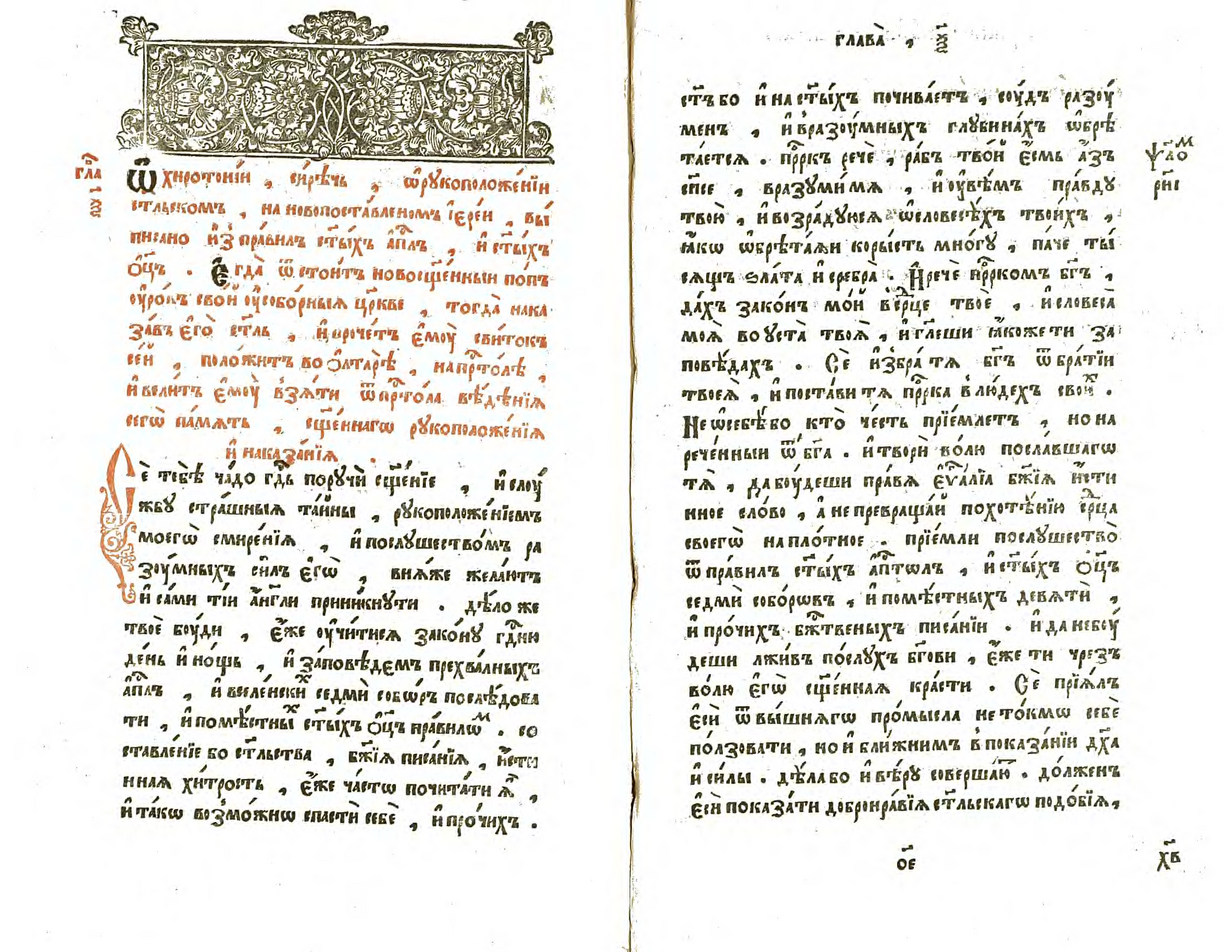 гла҃ ѯ҃
Ѿ хиротонїи , си́рѣчь , ѡ҆ рꙋкоположе́нїи
ст҃льскомъ , на новопоста́вленомъ і҆ере́и , вы́
писано и҆з̾ пра́вилъ ст҃ы́хъ а҆п҃лъ , и҆ ст҃ы́хъ
ѻ҆ц҃ъ . Є҆гда̀ ѿстои́тъ новосщ҃е́нныи по́пъ
оу҆ро́къ сво́й оу҆ собо́рныѧ цр҃кве , тогда̀ нака
за́въ є҆го̀ ст҃ль , и҆ прочте́тъ є҆моу̀ сви́токъ
се́й , положи́тъ во ѻ҆лтарѣ̀ , на прⷭ҇то́лѣ ,
и҆ вели́тъ є҆моу̀ взѧ́ти ѿ прⷭ҇то́ла вѣ́дѣнїѧ
сегѡ̀ па́мѧть , сщ҃е́ннагѡ рꙋкоположе́нїѧ
и҆ наказа́нїѧ .
Сѐ тебѣ̀ ча́до гд҇ь порꙋчѝ сщ҃е́нїе , и҆ слоу́
жбꙋ стра́шныѧ та́йны , рꙋкоположе́нїемъ
моегѡ̀ смире́нїѧ , и҆ послꙋшество́мъ ра
зоу́мныхъ си́лъ є҆гѡ̀ , в̾нѧ́же жела́ютъ
и҆ са́ми ті́и а҆́нг҃ли прини́кнꙋти . дѣ́ло же
твоѐ боу́ди , є҆́же оу҆чи́тисѧ зако́нꙋ гд҇ню
де́нь и҆ но́щь , и҆ за́повѣдемъ прехва́лныхъ
а҆п҃лъ , и҆ вселе́нскиⷯ седмѝ собѡ́ръ послѣ́дова
ти , и҆ помѣ́стныⷯ ст҃ы́хъ ѻ҆ц҃ъ пра́вилѡⷨ . со
ставле́нїе бо ст҃льства , бж҃їѧ писа́нїѧ , и҆́сти
ннаѧ хи́трость , є҆́же ча́стѡ почита́ти ѧ҆̀ ,
и҆ та́кѡ возмо́жнѡ спастѝ себѐ , и҆ про́чихъ .
глава̀ , ѯ҃
ст҃ъ бо и҆ на ст҃ы́хъ почива́етъ , соу́дъ разоу́
менъ , и҆ в̾разоу́мныхъ глꙋбина́хъ ѡ҆брѣ
та́етсѧ . пр҇ркъ речѐ , ра́бъ тво́й є҆́смь а҆́зъ
сп҃се , вразꙋми́ мѧ , и҆ оу҆вѣ́мъ пра́вдꙋ
твою̀ , и҆ возра́дꙋюсѧ ѡ҆ словесѣ́хъ твои́хъ ,
ꙗ҆́кѡ ѡ҆брѣта́ѧи коры́сть мно́гꙋ , па́че ты́
сѧщъ зла́та и҆ сребра̀ . И҆ речѐ пр҇ркомъ бг҃ъ ,
да́хъ зако́нъ мо́й в̾ср҇це твоѐ , и҆ словеса̀
моѧ̀ во оу҆ста̀ твоѧ̀ , и҆ гл҃еши ꙗ҆́коже ти за
повѣ́дахъ . Сѐ и҆збра́ тѧ бг҃ъ ѿ бра́тїи
твоеѧ̀ , и҆ поста́ви тѧ пр҇рка в̾лю́дехъ свои́ⷯ .
Не ѡ҆ себѣ́ бо кто̀ че́сть прїе́млетъ , но на
рече́нныи ѿ бг҃а . и҆ творѝ во́лю посла́вшагѡ
тѧ̀ , да боу́деши пра́вѧ є҆ѵⷢ҇а́лїѧ бж҃їѧ и҆́сти
нное сло́во , а҆ не превраща́й по хотѣ́нїю ср҇ца
своегѡ̀ на пло́тное . прїе́мли послꙋ́шество
ѿ пра́вилъ ст҃ы́хъ а҆пⷭ҇то́лъ , и҆ ст҃ы́хъ ѻ҆ц҃ъ
седмѝ собо́рѡвъ , и҆ помѣ́стныхъ девѧтѝ ,
и҆ про́чихъ бжⷭ҇твеныхъ писа́нїи . и҆ да не боу́
деши лжи́въ по́слꙋхъ бг҃ови , є҆́же ти чрезъ
во́лю є҆гѡ̀ сщ҃е́ннаѧ кра́сти . Сѐ прїѧ́лъ
є҆сѝ ѿ вы́шнѧгѡ про́мысла не то́кмѡ себѐ
по́лзовати , но и҆ бли́жнимъ в̾показа́нїи дх҃а
и҆ си́лы . дѣ́ла бо и҆ вѣ́рꙋ соверша́ю . до́лженъ
є҆сѝ показа́ти добронра́вїѧ ст҃льскагѡ подо́бїѧ ,
ѱа́лоⷨ
рн҃і
ѻ҃е
х҃в